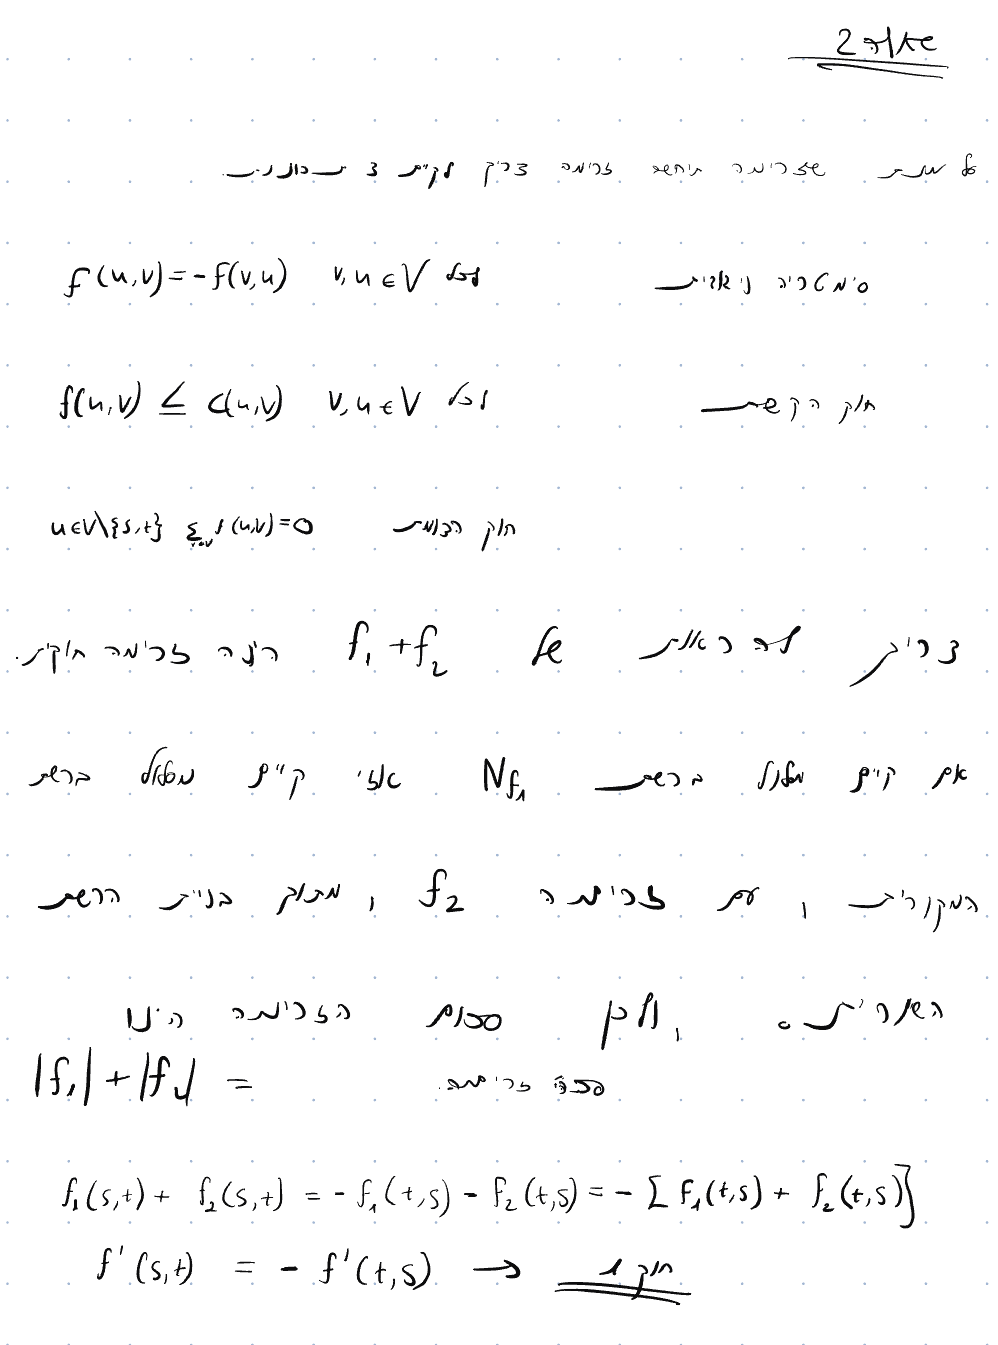 שאלה 2
על מנת שזרימה תיחשב זרימה צריך לקיים 3 תכונות.
סימטריה f(u,v)=-f(v,u) v,u∈V לכל
חוק הקשת f(u,v) ≤ c(u,v) v,u∈V לכל
חוק הצומת u∈V\{s,t} Σ f(u,v)=0
צריך להראות של f₁+f₂ הינה זרימה חוקית.
אם קיים מסלול ברשת N_f₁ אזי קיים מסלול ברשת
המקורית, עם זרימה f₂, מתוך בניית הרשת
השארית. ולכן סכום הזרימה הינו
זרימה. = |f₁|+|f₂|
f₁(s,t) + f₂(s,t) = -f₁(t,s) - f₂(t,s) = -[f₁(t,s) + f₂(t,s)]
f'(s,t) = -f'(t,s) → חוק 1